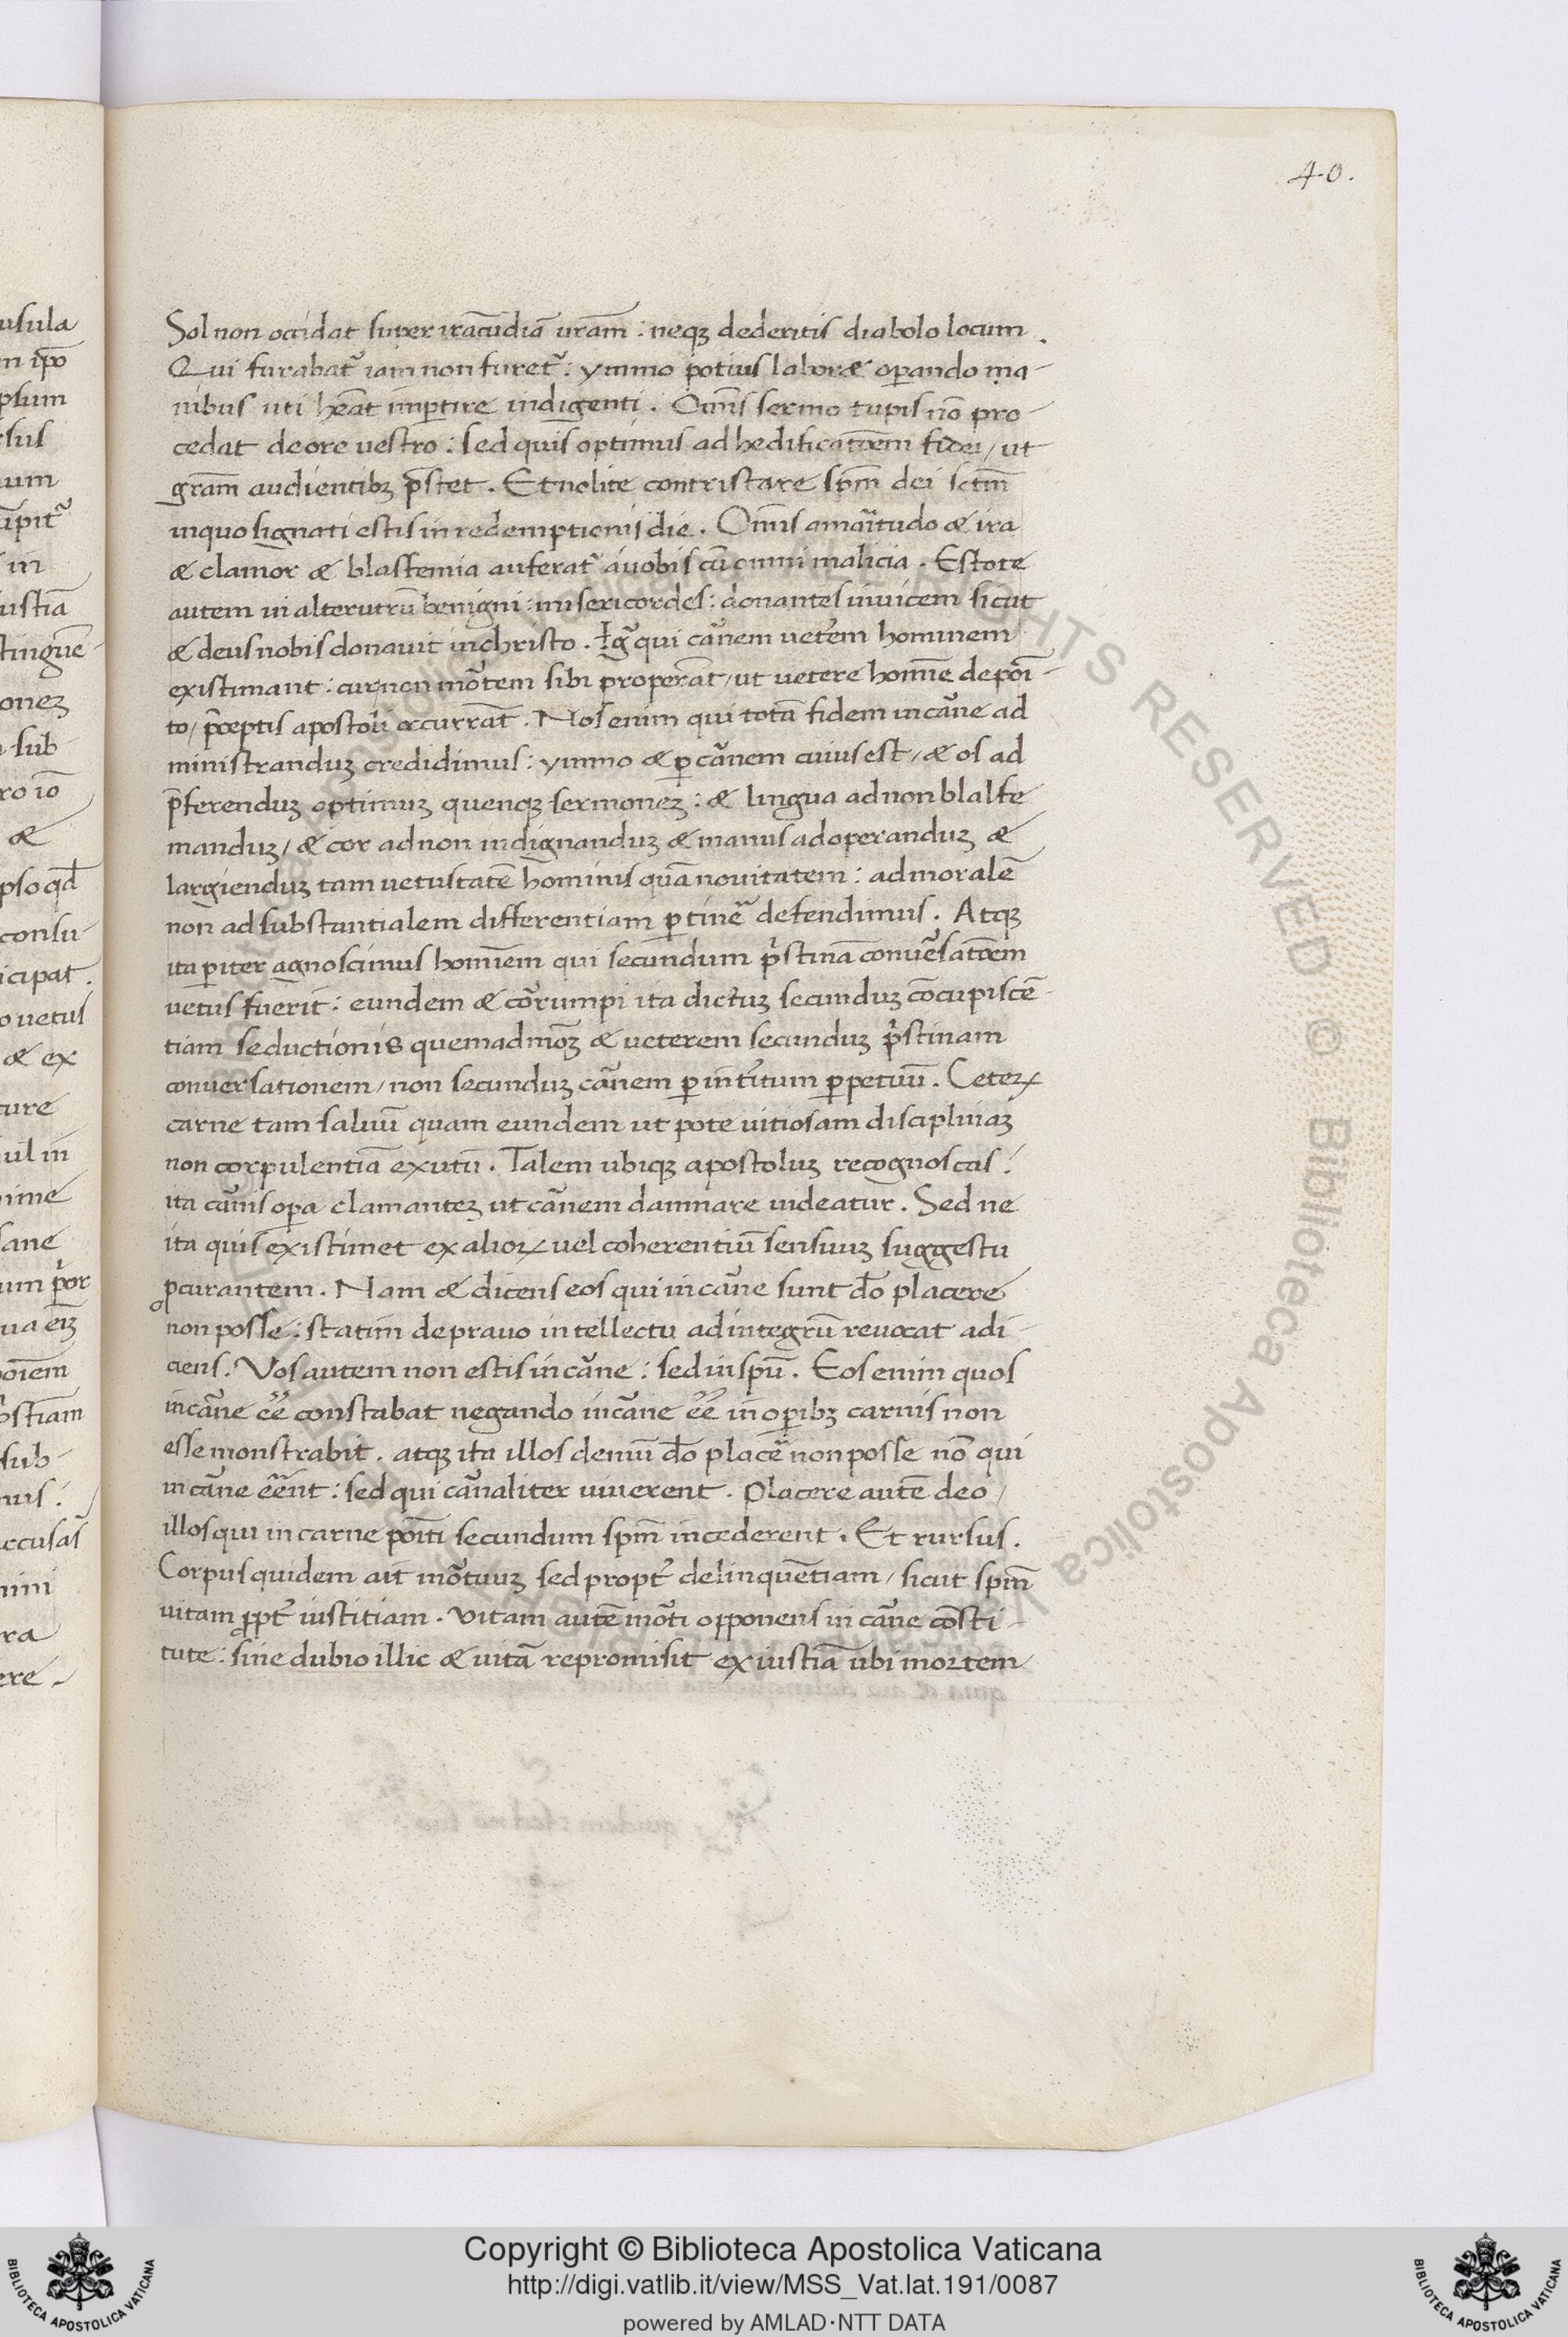 40.
Sol non occidat super iracūdiā vrām : neqꝫ dederitis diabolo locum .
Qui furabat᷑ iam non furet᷑ : ymmo potius laboræ operando ma-
nibus uti heāt impertire indigenti . Omīs sermo turpis nō pro-
cedat de ore vestro : sed quis optimus ad hedificatōem fidei / ut
grām audientibꝫ p̄stet . Et nolite contristare spm̄ dei sctm̄
in quo signati estis in redemptionis die . Omīs amaritudo & ira
& clamor & blasfemia auferat᷑ a uobis cū omni malicia . Estote
autem in alterutrū benigni : misericordes : donantes inuicem sicut
& deus nobis donauit in christo . Igr̄ qui carnem ueterem hominem
existimant : cur non mortem sibi properāt / ut uetere homīe deposi-
to / p̄ceptis apostoli occurrāt . Nos enim qui totā fidem in carne ad
ministranduꝫ credidimus : ymmo & ꝑ carnem cuius est / & os ad
p̄ferenduꝫ optimuꝫ quenqꝫ sermoneꝫ : & lingua ad non blasfe
manduꝫ / & cor ad non indignanduꝫ & manus ad operanduꝫ &
largienduꝫ tam uetustatē hominis quā nouitatem : ad moralē
non ad substantialem differentiam ꝑtinere defendimus . Atqꝫ
ita ꝑiter agnoscimus homīem qui secundum p̄stinā conuersatōem
uetus fuerit : eundem & corrumpi ita dictuꝫ secunduꝫ cōcupiscē-
tiam seductionis quemadmoꝫ & ueterem secunduꝫ p̄stinam
conuersationem / non secunduꝫ carnem ꝑ interitum ꝑpetuū . Ceteꝝ
carne tam saluū quam eundem ut pote uitiosam disciplinaꝫ
non corpulentiā exutū . Talem ubiqꝫ apostoluꝫ recognoscas :
ita carnis oꝑa clamanteꝫ ut carnem damnare uideatur . Sed ne
ita quis existimet ex alioꝝ uel coherentiū sensuuꝫ suggestu
ꝓcurantem . Nam & dicens eos qui in carne sunt dō placere
non posse : statim de prauo intellectu ad integrū reuocat adi-
ciens : Vos autem non estis in carne : sed in spū . Eos enim quos
in carne ēē constabat negando in carne ēē in oꝑibꝫ carnis non
esse monstrabit . atqꝫ ita illos demū dō placere non posse nō qui
in carne eēnt : sed qui carnaliter uiuerent . Placere autē deo /
illos qui in carne poīti secundum spm̄ incederent . Et rursus .
Corpus quidem ait mortuuꝫ sed propt᷑ delinquētiam / sicut spm̄
uitam ꝓpt᷑ iustitiam . Vitam autē morti opponens in carne cōsti-
tute : sine dubio illic & uitā repromisit ex iustiā ubi mortem
Copyright © Biblioteca Apostolica Vaticana
http://digi.vatlib.it/view/MSS_Vat.lat.191/0087
powered by AMLAD·NTT DATA